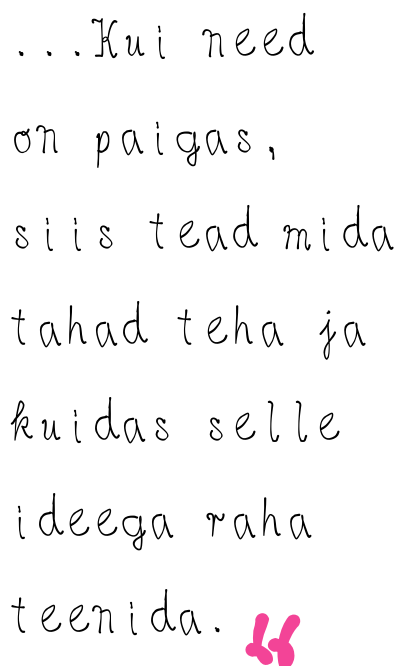 ...Kui need
on paigas,
siis tead mida
tahad teha ja
kuidas selle
ideega raha
teenida.